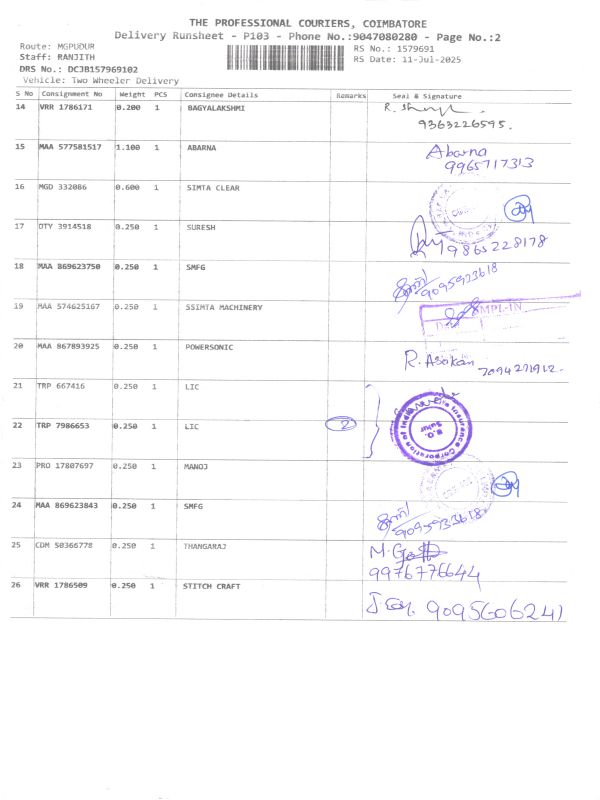 THE PROFESSIONAL COURIERS, COIMBATORE
Delivery Runsheet - P103 - Phone No.:9047080280 - Page No.:2
Route: MGPUDUR
RS No.: 1579691
Staff: RANJITH
RS Date: 11-Jul-2025
DRS No.: DCJB157969102
Vehicle: Two Wheeler Delivery
S No Consignment No Weight PCS Consignee Details Remarks Seal & Signature
14 VRR 1786171 0.200 1 BAGYALAKSHMI
9363226595.
15 MAA 577581517 1.100 1 ABARNA Abarna
9965717313
16 MGD 332086 0.600 1 SIMTA CLEAR
17 DTY 3914518 0.250 1 SURESH 9865228178
18 MAA 869623750 0.250 1 SMFG
9095933618
19 MAA 574625167 0.250 1 SSIMTA MACHINERY
20 MAA 867893925 0.250 1 POWERSONIC R. Asokan 7094271912.
21 TRP 667416 0.250 1 LIC
22 TRP 7986653 0.250 1 LIC 2
Life Insurance Corporation of India
B.O.
Sulur
23 PRO 17807697 0.250 1 MANOJ
24 MAA 869623843 0.250 1 SMFG
9095933618
25 CDM 50366778 0.250 1 THANGARAJ
9976776644
26 VRR 1786509 0.250 1 STITCH CRAFT 9095606241